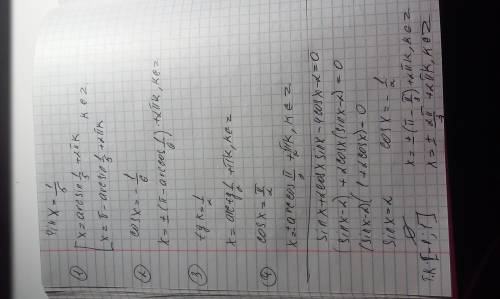 ① sin x = 1/6
[ x = arcsin 1/6 + 2πk
k ∈ z
[ x = π - arcsin 1/6 + 2πk
② cos x = - 1/6
x = ± (π - arccos 1/6) + 2πk, k ∈ z
③ tg x = 1/2
x = arctg 1/2 + πk, k ∈ z
④ cos x = π/2
x = ± arccos π/2 + 2πk, k ∈ z
sin x + 2 cos x sin x - 4 cos x - 2 = 0
(sin x - 2) + 2 cos x (sin x - 2) = 0
(sin x - 2)(1 + 2 cos x) = 0
sin x = 2 cos x = - 1/2
∅ x = ± (π - π/3) + 2πk, k ∈ z
т.к [-1; 1] x = ± 2π/3 + 2πk, k ∈ z